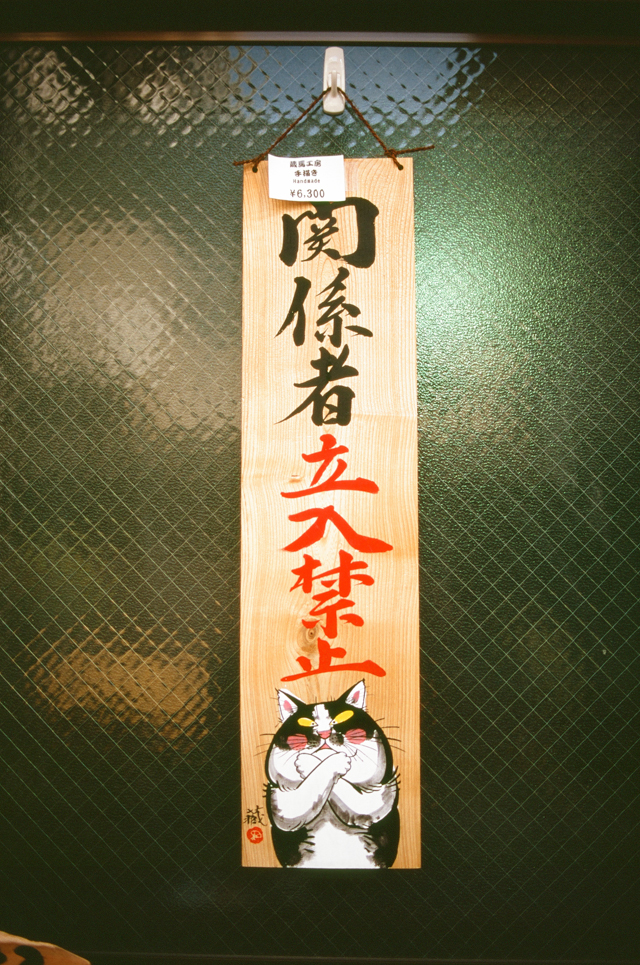 手描き
Handmade
¥6,300
関係者
立入禁止